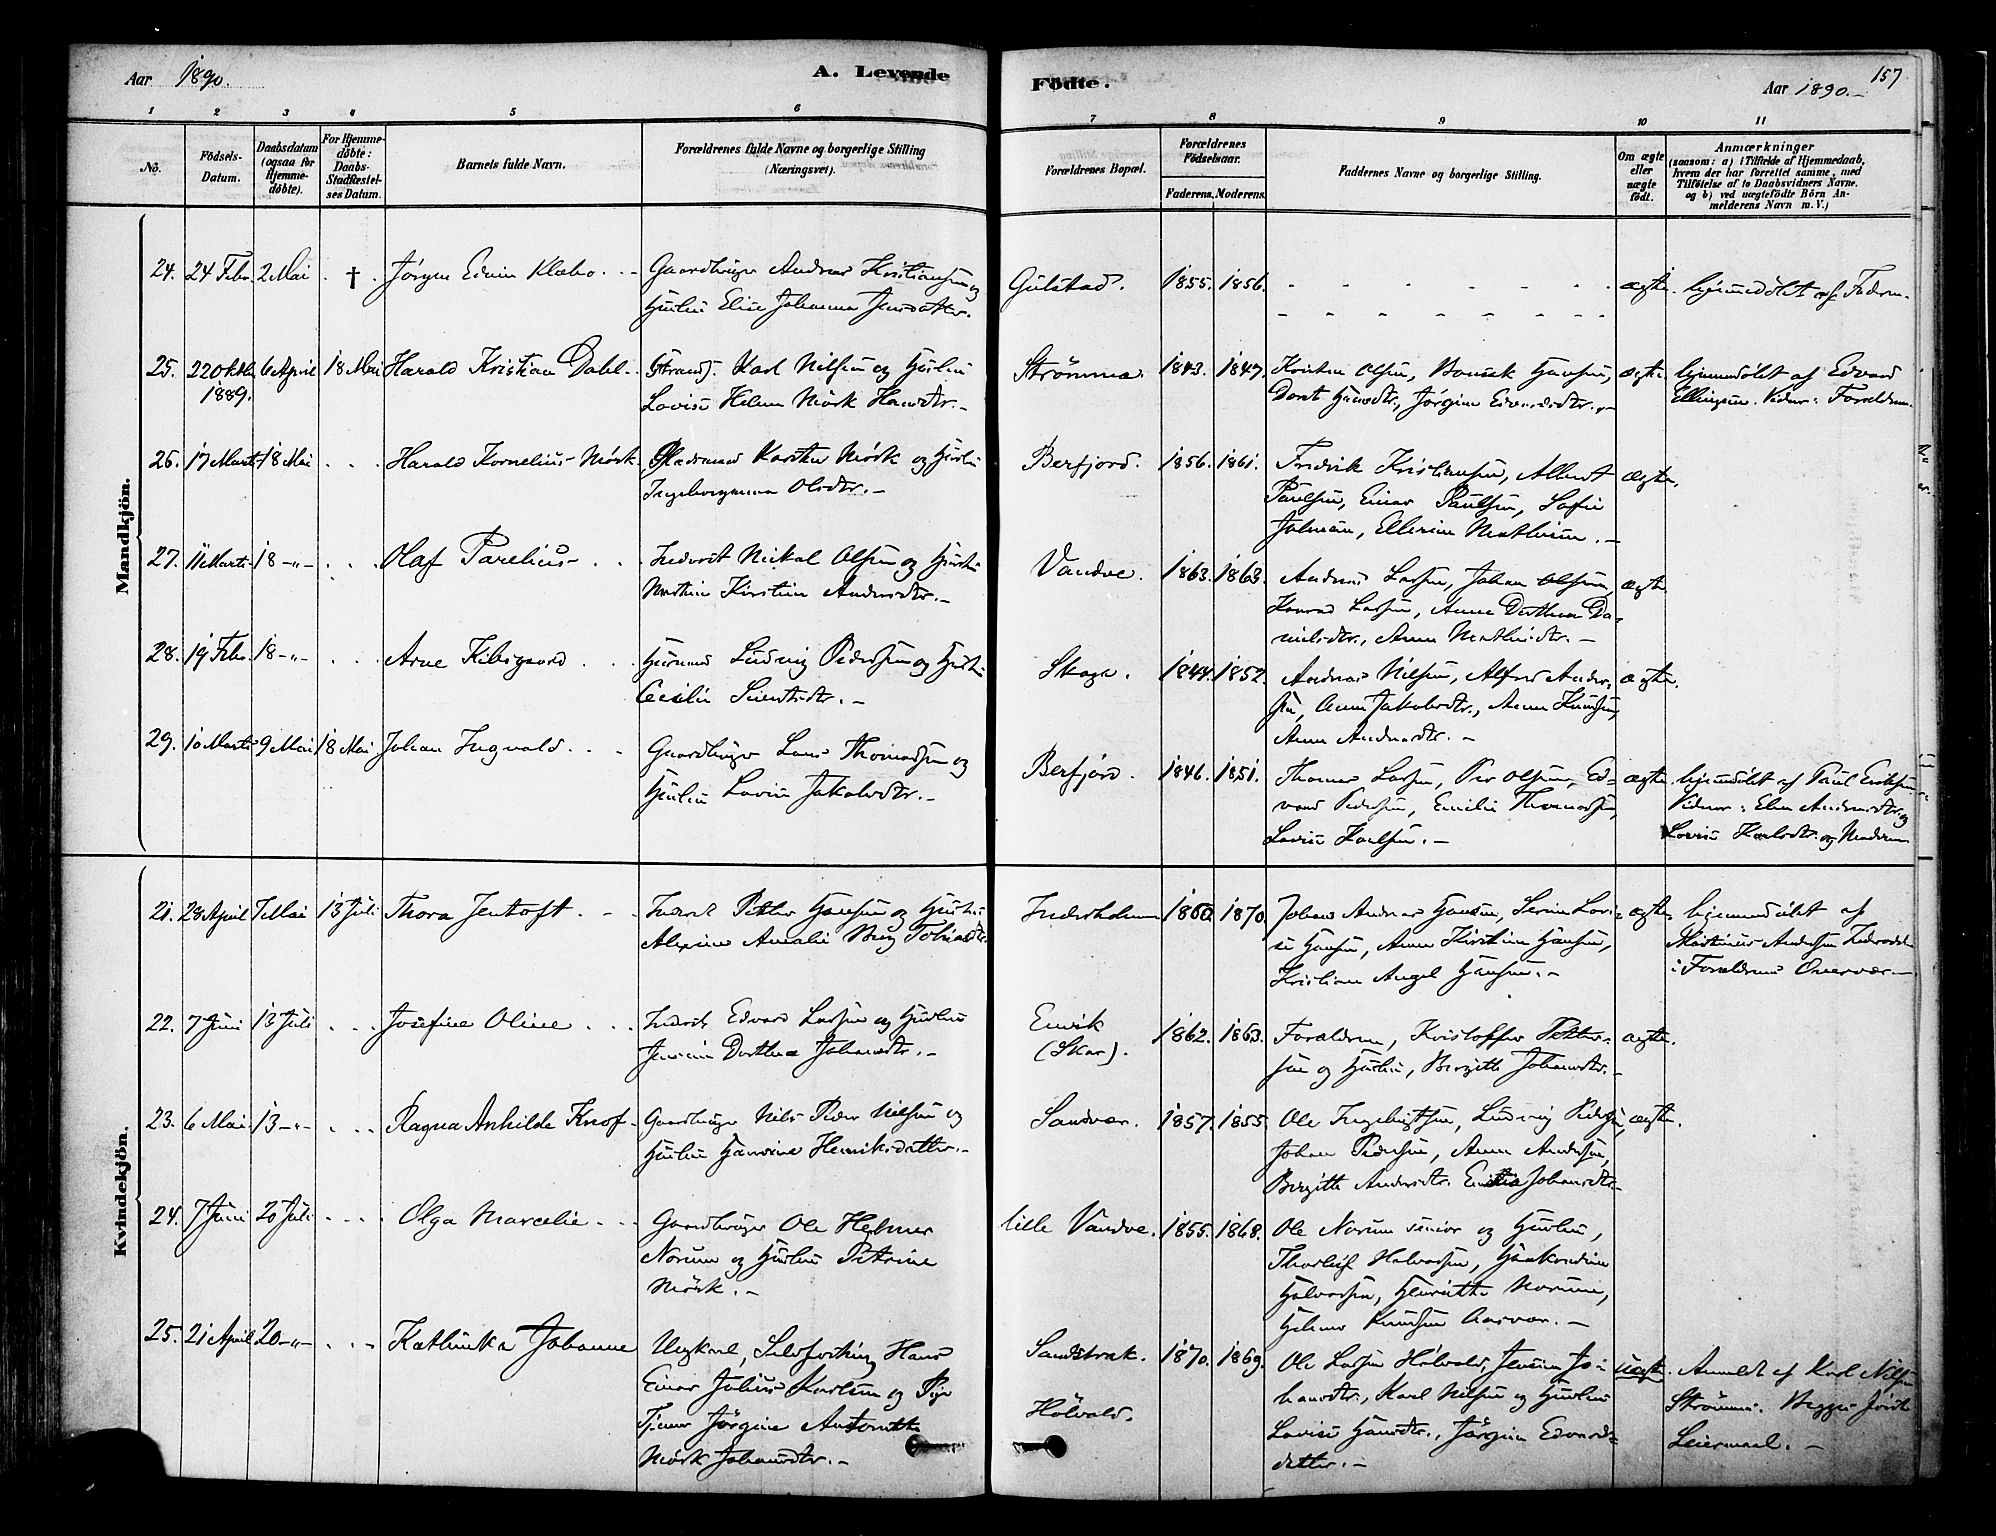 Aar 1890.
A. Levende
Födte.
Aar 1890.
157
1 2 3 4 5 6 7 8 9 10 11
Nö.
Födsels-
Datum.
Daabsdatum
(ogsaa for
Hjemme-
döbte).
For Hjemme-
döbte:
Daabs
Stadfæstel-
ses Datum.
Barnets fulde Navn.
Forældrenes fulde Navne og borgerlige Stilling
(Næringsvei).
Forældrenes Bopæl.
Forældrenes
Födselsaar.
Faderens. Moderens.
Faddernes Navne og borgerlige Stilling.
Om ægte
eller
uægte
födt.
Anmærkninger
(saasom: a) i Tilfælde af Hjemmedaab,
hvem der har forrettet samme, med
Tilföielse af to Daabsvidners Navne.
og b) ved uægtefödte Börn An-
melderens Navn m. V.)
Mandkjön.
24. 24 Febr 2 Mai † Jørgen Edvin Klæbo Gaardbruger Andreas Kristiansen og
Hustru Elise Johanna Jensdatter.
Gulstad. 1855. 1856. ægte. hjemmedøbt af Faderen
25. 22 Oktbr 6 April 18 Mai Harald Kristian Dahl Strands. Karl Nilsen og Hustru
1889.
Lovise Helene Mörk Hansdtr.
Strömmen 1843. 1847. Kristen Olsen, Hansen,
Dorst Hansdtr., Jørgine Edvardsdtr.
ægte. hjemmedøbt af Edvard
Ellingsen. Vidner: Forældrene
26. 17 Marts 18 Mai Harald Kornelius Mörk Pladsmand Karsten Mörk og Hustru
Ingeborganna Olsdtr.
Berfjord. 1856. 1861. Fredrik Kristiansen, Albert
Paulsen, Einar Paulsen, Sofie
Johnsen, Ellerine Mathisen.
ægte.
27. 11 Marts 18 Olaf Parelius Inderst Nickal Olsen og Hustru
Martine Kirstine Andersdtr.
Vandve. 1863. 1863. Andreas Larsen, Johan Olsen,
Konrad Larsen, Anne Dorthea Da-
nielsdtr., Anne Mathisdtr.
ægte.
28. 19 Febr 18 Arne Kibsgaard Husmand Ludvig Pedersen og Hustru
Cecilie Sivertsdtr.
Skage. 1844. 1852. Andreas Nilsen, Alfred Ander-
sen, Anne Jakobsdtr., Anne Knudsen,
Anne Andersdtr.
ægte.
29. 10 Marts 9 Mai 18 Mai Johan Ingvald Gaardbruger Lars Thomassen og
Hustru Lovise Jakobsdtr.
Berfjord. 1846. 1851. Thomas Larsen, Per Olsen, Ed-
vard Pedersen, Emilie Thomassen,
Lovise Karlsen.
ægte. hjemmedøbt af Paul Eriksen
Vidner: Elen Andersdtr. og
Lovise Karlsdtr. og Moderen
Kvindekjön.
21. 28 April 7 Mai 13 Juli Thora Jentoft Inderst Petter Hansen og Hustru
Alexine Amalie Berg Tobiasdtr.
Inderholmen 1860. 1870. Johan Andreas Hansen, Serine Lovi-
se Hansen, Anne Kirstine Hansen,
Kristian Angel Hansen.
ægte. hjemmedøbt af
Martinus Andersen
i Forældrenes Overvær.
22. 7 Juni 13 Juli Josefine Oline Inderst Edvard Larsen og Hustru
Jensine Dorthea Johansdtr.
Emvik
(Skar).
1862. 1863. Forældrene, Kristoffer Petter-
sen og Hustru, Birgitte Johansdtr.
ægte.
23. 6 Mai 13 Ragna Anhilde Knof Gaardbruger Nils Peder Nilsen og
Hustru Hansine Henriksdatter.
Sandvær. 1857. 1855. Ole Ingebrigtsen, Ludvig Pedersen,
Johan Pedersen, Anne Andersen,
Birgitte Andersdtr. Johansdtr.
ægte.
24. 7 Juni 20 Juli Olga Marcelie Gaardbruger Ole Helmer
Norum og Hustru Petrine
Mörk.
lille Vandve. 1855. 1868. Ole Norum senior og Hustru,
Thorleif Halvorsen, Haakondine
Halvorsen, Henriette Norum,
Helmer Knudsen Aasvær.
25. 21 April 20 Kathinka Johanne Ungkarl, Hans
Einar Julius Karlsen og Pige
Tjener Jörgine Antonette
Mörk Johansdtr.
Sandstrak.
Hölvald.
1870. 1869. Ole Larsen Hölvald, Jensine Jo-
hansdtr., Karl Nilsen og Hustru
Lovise Hansdtr., Jörgine Edvards-
datter.
uægte. Anmeldt af Karl Nilsen
Strömmen. Begges förste
Leiermaal.